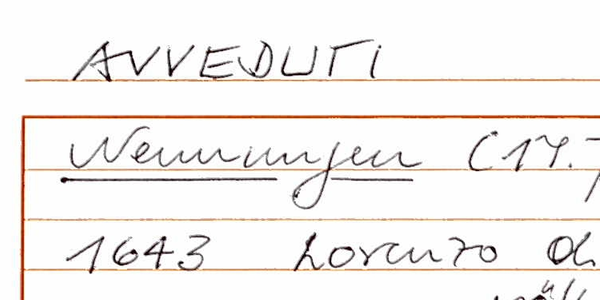 AVVEDUTI
Nennungen (17.
1643 Lorenzo